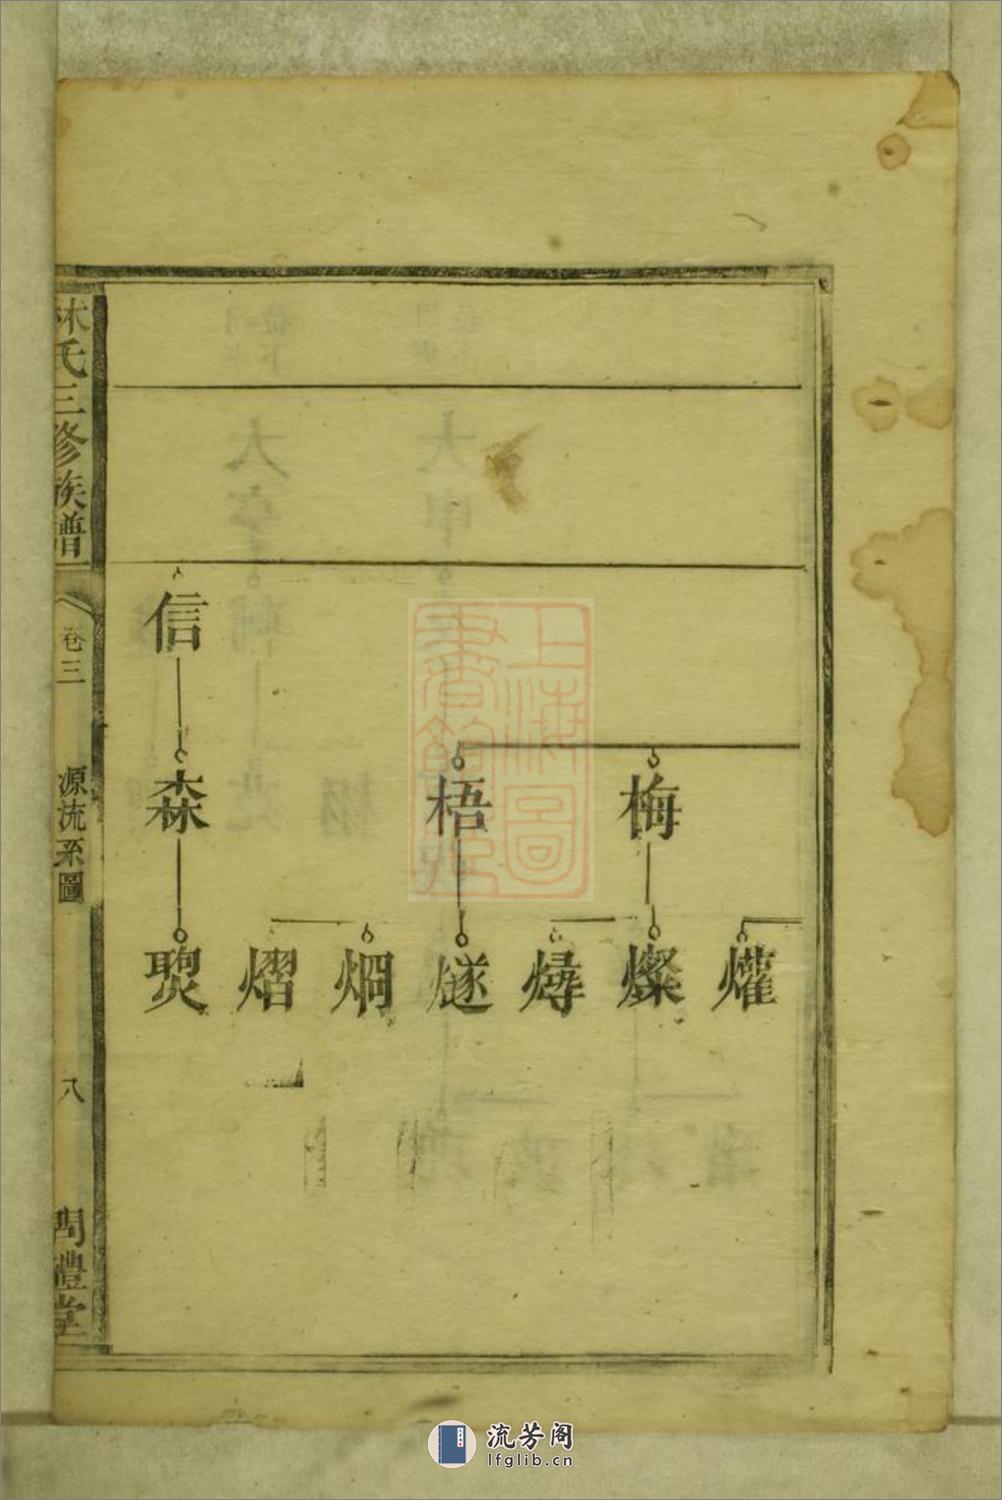 信
梅
梧
森
爟
燦
燖
燧
焵
熠
林氏三修族譜
卷三
源流系圖
八
問禮堂
上海圖書館藏
流芳阁
lfglib.cn